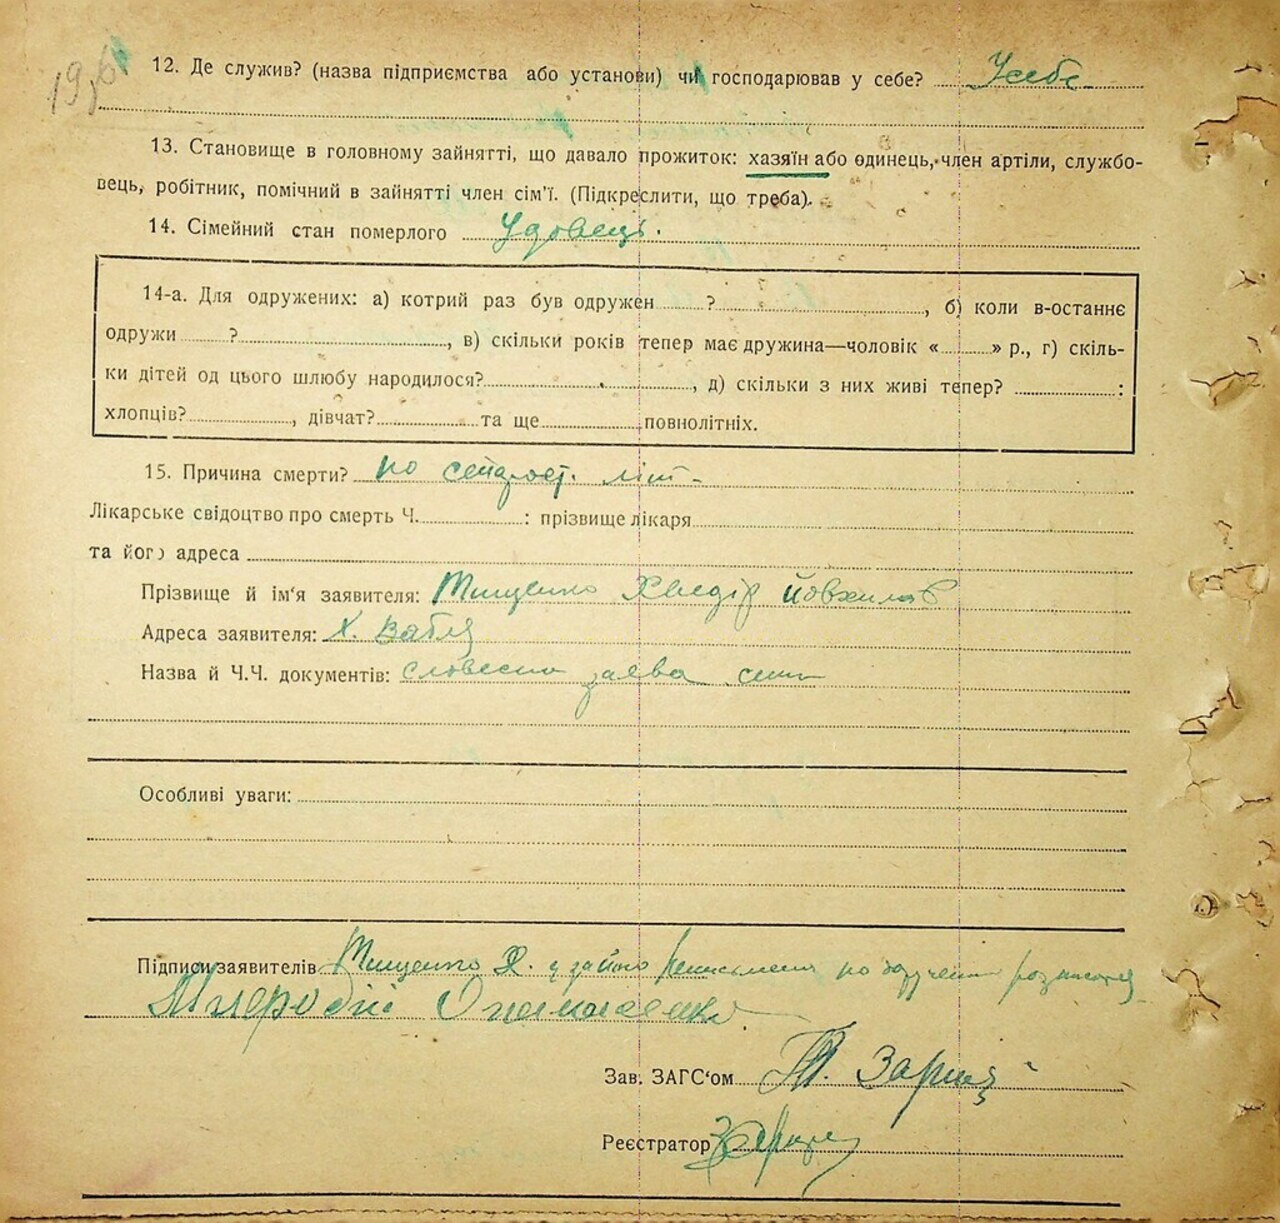 12. Де служив? (назва підприємства або установи) чи господарював у себе? У себе
13. Становище в головному зайнятті, що давало прожиток: хазяїн або одинець, член артілі, службо-
вець, робітник, помічний в зайнятті член сім'ї. (Підкреслити, що треба).
14. Сімейний стан померлого Удовець.
14-а. Для одружених: а) котрий раз був одружен ? , б) коли в-останнє
одружи ? , в) скільки років тепер має дружина—чоловік « » р., г) скіль-
ки дітей од цього шлюбу народилося? , д) скільки з них живі тепер? :
хлопців? , дівчат? та ще повнолітніх.
15. Причина смерти? по літ
Лікарське свідоцтво про смерть Ч. : прізвище лікаря
та його адреса
Прізвище й ім'я заявителя: Тищенко Хведір
Адреса заявителя: Х.
Назва й Ч.Ч. документів: словесна заява
Особливі уваги:
Підписи заявителів Тищенко Х. по
Зав. ЗАГС'ом
Реєстратор